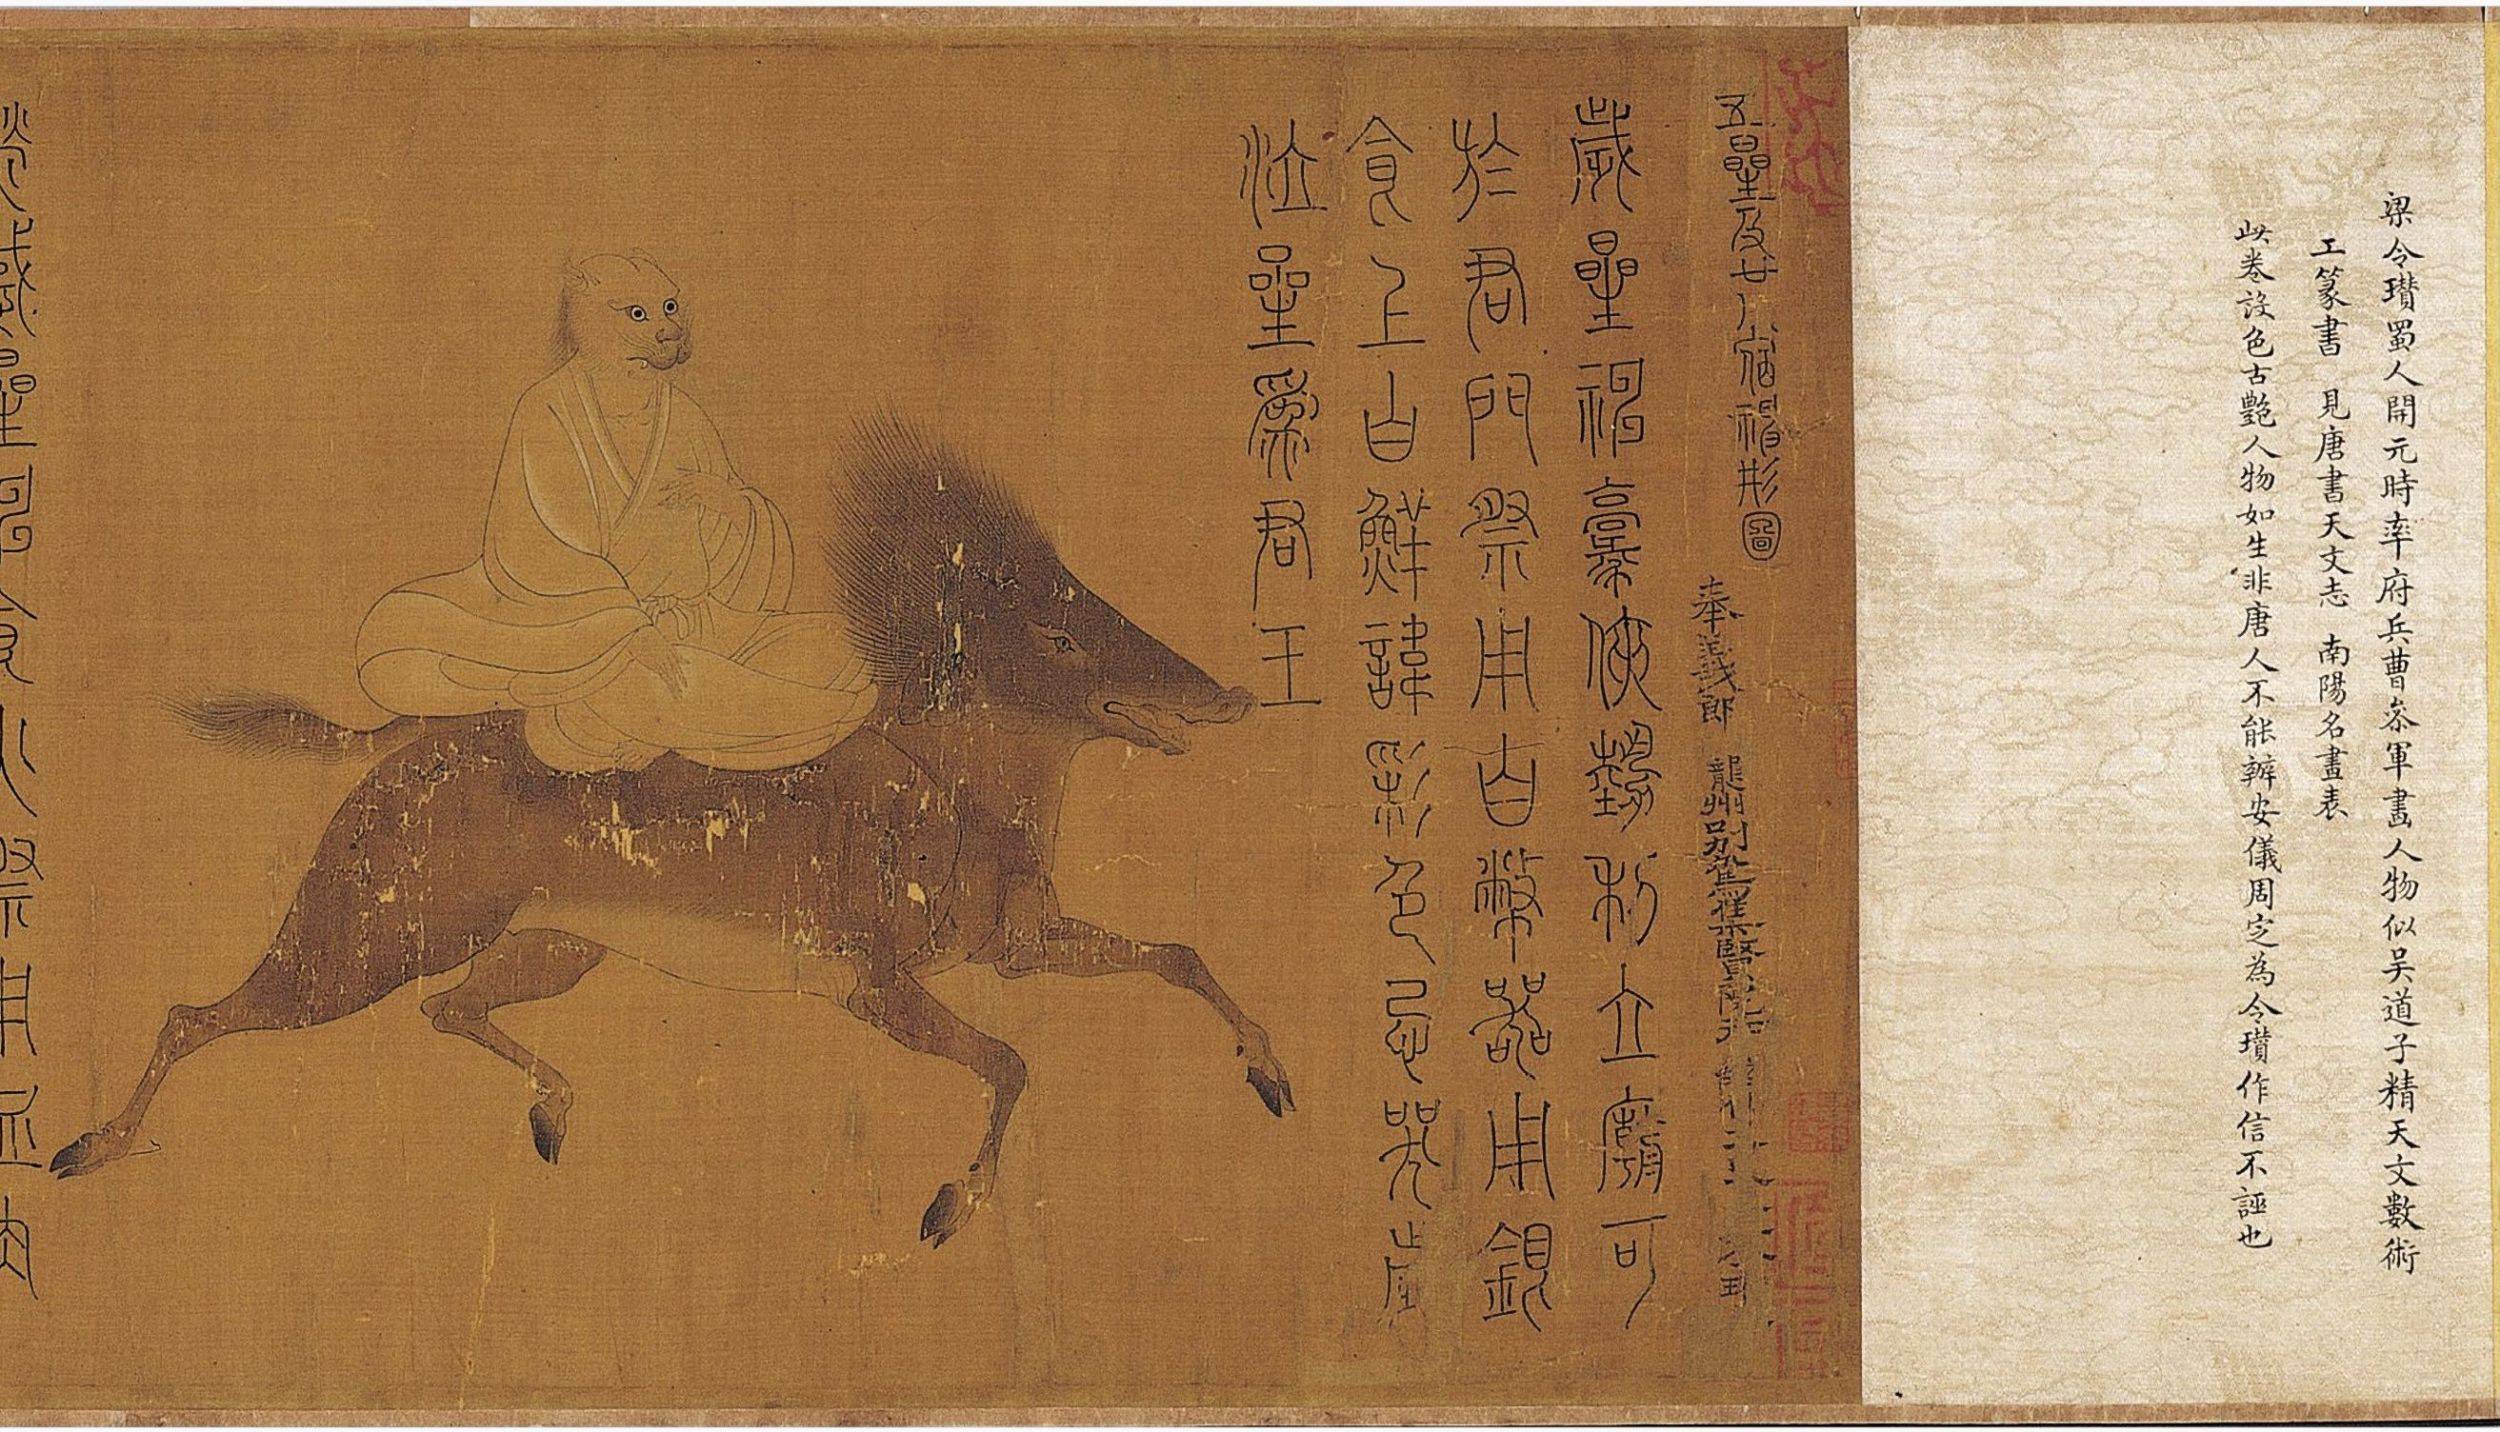 梁令瓚蜀人開元時率府兵曹叅軍畫人物似吴道子精天文數術
工篆書 見唐書天文志 南陽名畫表
此卷設色古艷人物如生非唐人不能辦安儀周定為令瓚作信不誣也
五星及廿八宿神形圖
奉義郎 龍州別駕集賢院待
歲星神豪俠勢利立廟可
於君門祭用白幣器用銀
食上白鮮諱彩色忌哭
泣星為君王